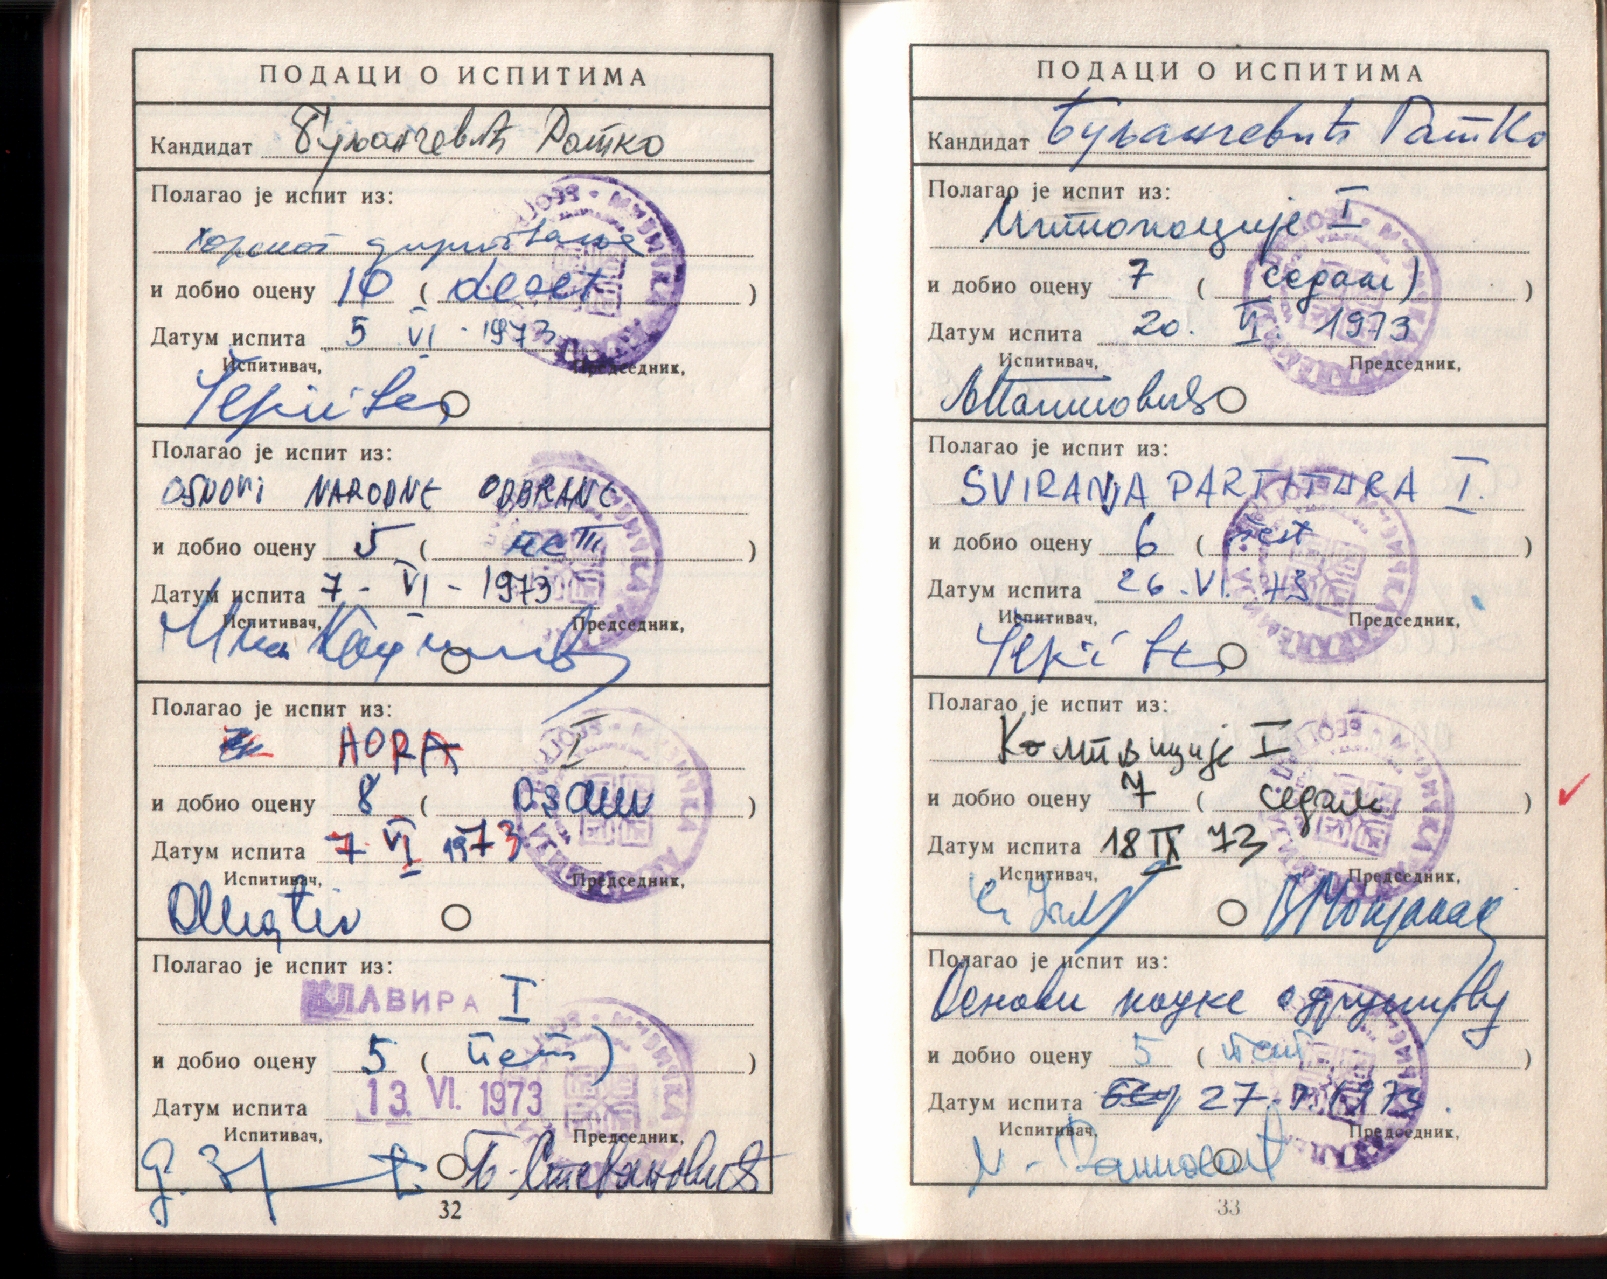 ПОДАЦИ О ИСПИТИМА
Кандидат Буљанчевић Ратко
Полагао је испит из:
хорског дириговања
и добио оцену 10 ( deset )
Датум испита 5 VI - 1973
Испитивач, Председник,
Полагао је испит из:
OSNOVI NARODNE ODBRANE
и добио оцену 5 ( пет )
Датум испита 7 - VI - 1973
Испитивач, Председник,
Полагао је испит из:
HORA I
и добио оцену 8 ( osam )
Датум испита 7 VI 1973
Испитивач, Председник,
Полагао је испит из:
КЛАВИРА I
и добио оцену 5 ( пет )
Датум испита 13. VI. 1973
Испитивач, Председник,
Стевановић
32
ПОДАЦИ О ИСПИТИМА
Кандидат Буљанчевић Ратко
Полагао је испит из:
I
и добио оцену 7 ( седам )
Датум испита 20. VI. 1973
Испитивач, Председник,
Полагао је испит из:
SVIRANJA PARTITURA I.
и добио оцену 6 ( šest )
Датум испита 26. VI. 73
Испитивач, Председник,
Полагао је испит из:
I
и добио оцену 7 ( седам )
Датум испита 18 IX 73
Испитивач, Председник,
Полагао је испит из:
Основи науке о друштву
и добио оцену 5 ( пет )
Датум испита 27. 1973.
Испитивач, Председник,
33